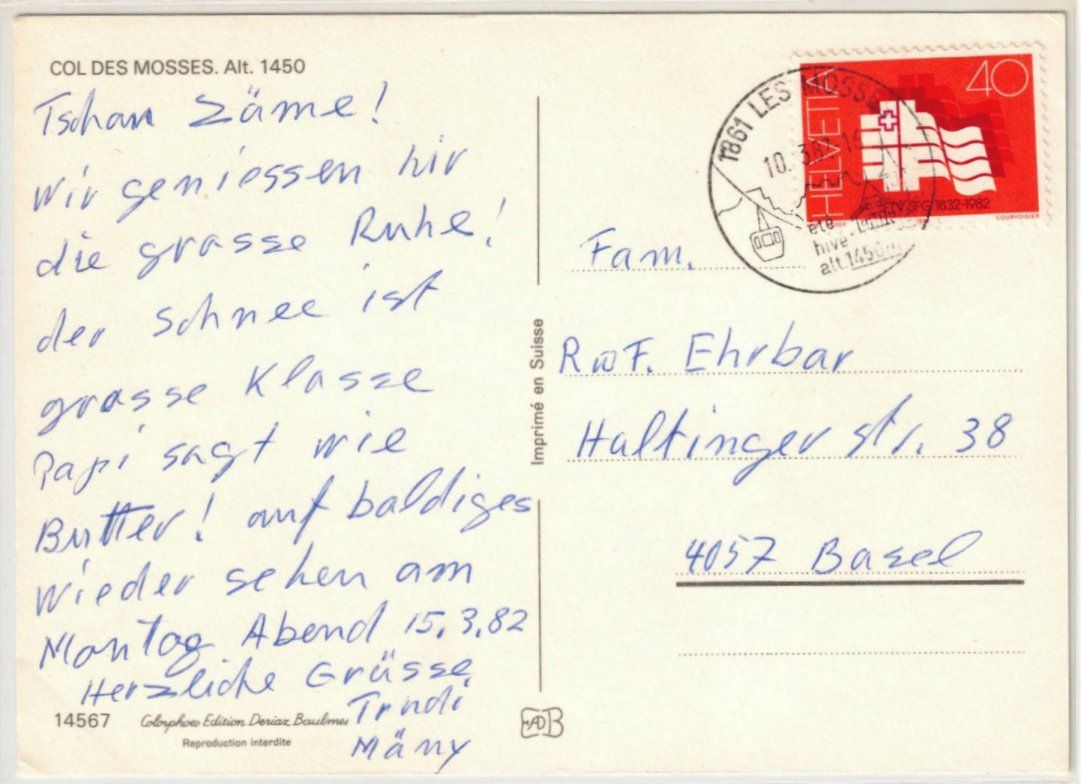 COL DES MOSSES. Alt. 1450
Tschau Zäme!
wir geniessen hir
die grosse Ruhe!
der Schnee ist
grosse Klasse
Papi sagt wie
Butter! auf baldiges
wieder sehen am
Montag Abend 15.3.82
Herzliche Grüsse
Trudi
Mäny
14567 Colorphoto Edition Deriaz Baulmes
Reproduction interdite
Imprimé en Suisse
1861 LES MOSSES
10. 3.82-16
alt. 1450
HELVETIA
40
1832-1982
COURVOISIER
Fam.
R. F. Ehrbar
Haltinger str. 38
4057 Basel